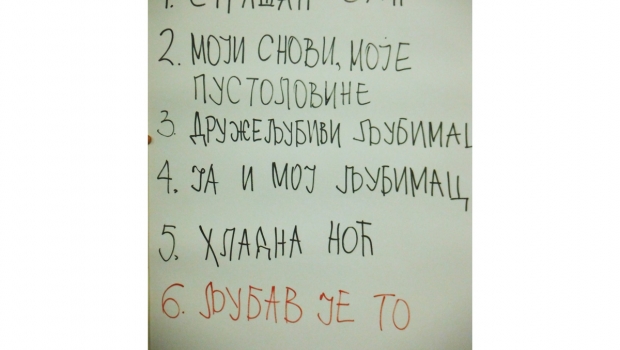 2. МОЈИ СНОВИ, МОЈЕ
ПУСТОЛОВИНЕ
3. ДРУЖЕЉУБИВИ ЉУБИМАЦ
4. ЈА И МОЈ ЉУБИМАЦ
5. ХЛАДНА НОЋ
6. ЉУБАВ ЈЕ ТО